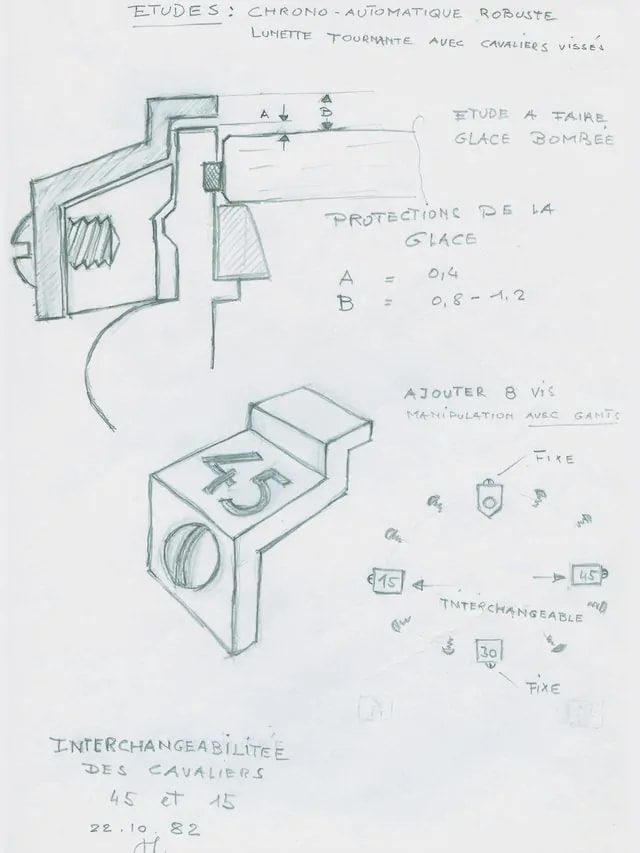 ETUDES : CHRONO-AUTOMATIQUE ROBUSTE
LUNETTE TOURNANTE AVEC CAVALIERS VISSÉS
A
B
ETUDE A FAIRE
GLACE BOMBÉE
PROTECTIONS DE LA
GLACE
A = 0,4
B = 0,8 - 1,2
45
AJOUTER 8 VIS
MANIPULATION AVEC GANTS
FIXE
15
45
INTERCHANGEABLE
30
FIXE
INTERCHANGEABILITEÉ
DES CAVALIERS
45 et 15
22.10.82